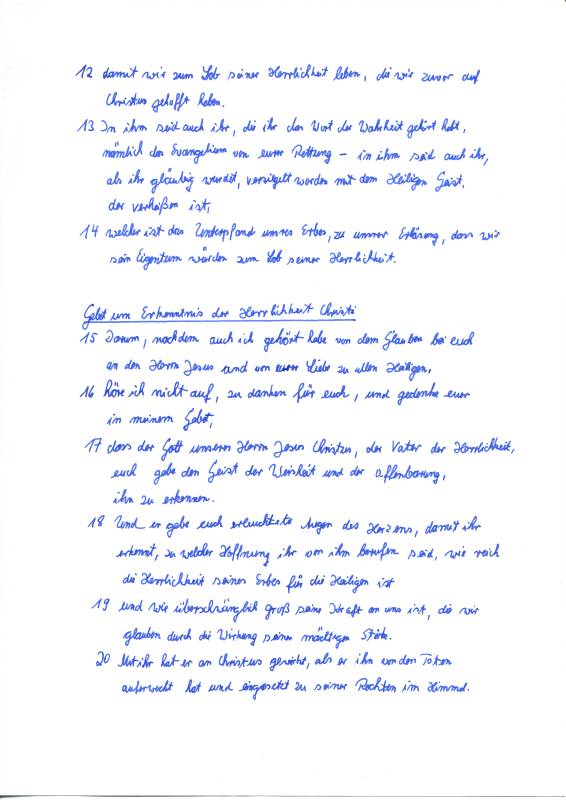 12 damit wir zum Lob seiner Herrlichkeit leben, die wir zuvor auf
Christus gehofft haben.
13 In ihm seid auch ihr, die ihr das Wort der Wahrheit gehört habt,
nämlich das Evangelium von eurer Rettung – in ihm seid auch ihr,
als ihr gläubig wurdet, versigelt worden mit dem Heiligen Geist,
der verheißen ist,
14 welcher ist das Unterpfand unsres Erbes, zu unsrer Erlösung, dass wir
sein Eigentum würden zum Lob seiner Herrlichkeit.
Gebet um Erkenntnis der Herrlichkeit Christi
15 Darum, nachdem auch ich gehört habe von dem Glauben bei euch
an den Herrn Jesus und von eurer Liebe zu allen Heiligen,
16 höre ich nicht auf, zu danken für euch, und gedenke euer
in meinem Gebet,
17 dass der Gott unseres Herrn Jesus Christus, der Vater der Herrlichkeit,
euch gebe den Geist der Weisheit und der Offenbarung,
ihn zu erkennen.
18 Und er gebe euch erleuchtete Augen des Herzens, damit ihr
erkennt, zu welcher Hoffnung ihr von ihm berufen seid, wie reich
die Herrlichkeit seines Erbes für die Heiligen ist
19 und wie überschwänglich groß seine Kraft an uns ist, die wir
glauben durch die Wirkung seiner mächtigen Stärke.
20 Mit ihr hat er an Christus gewirkt, als er ihn von den Toten
auferweckt hat und eingesetzt zu seiner Rechten im Himmel.